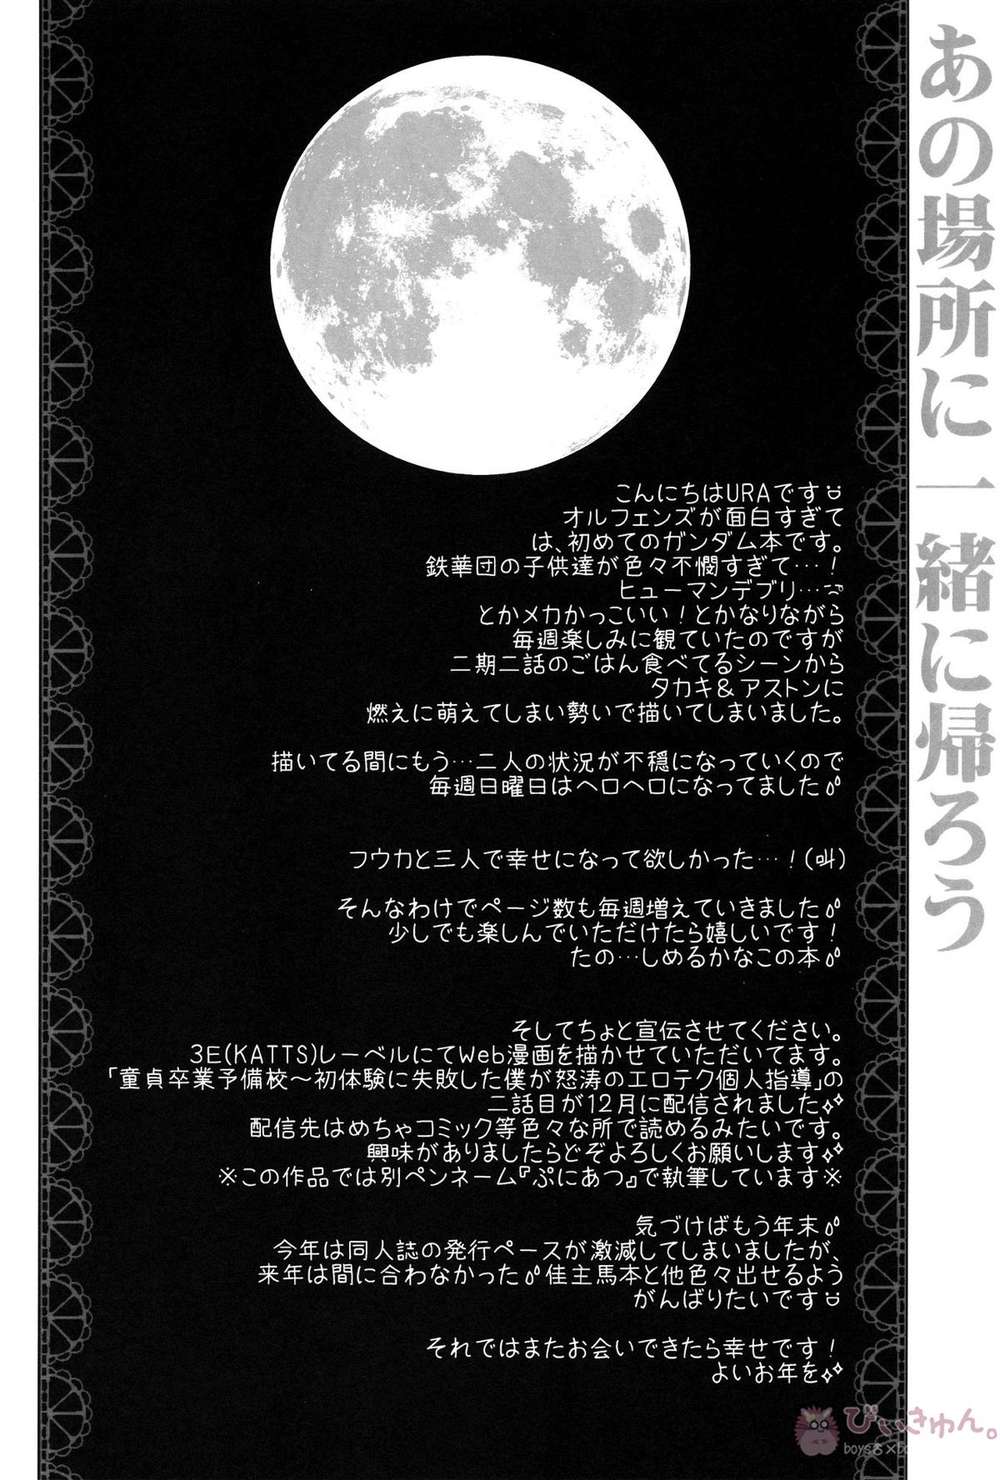 あの場所に一緒に帰ろう
こんにちはURAです
オルフェンズが面白すぎて
は、初めてのガンダム本です。
鉄華団の子供達が色々不憫すぎて…！
ヒューマンデブリ…
とかメカかっこいい！とかなりながら
毎週楽しみに観ていたのですが
二期二話のごはん食べてるシーンから
タカキ＆アストンに
燃えに萌えてしまい勢いで描いてしまいました。
描いてる間にもう…二人の状況が不穏になっていくので
毎週日曜日はヘロヘロになってました
フウカと三人で幸せになって欲しかった…！(叫)
そんなわけでページ数も毎週増えていきました
少しでも楽しんでいただけたら嬉しいです！
たの…しめるかなこの本
そしてちょと宣伝させてください。
3E(KATTS)レーベルにてWeb漫画を描かせていただいてます。
「童貞卒業予備校～初体験に失敗した僕が怒涛のエロテク個人指導」の
二話目が12月に配信されました
配信先はめちゃコミック等色々な所で読めるみたいです。
興味がありましたらどぞよろしくお願いします
※この作品では別ペンネーム『ぷにあつ』で執筆しています※
気づけばもう年末
今年は同人誌の発行ペースが激減してしまいましたが、
来年は間に合わなかった佳主馬本と他色々出せるよう
がんばりたいです
それではまたお会いできたら幸せです！
よいお年を
びぃきゅん。